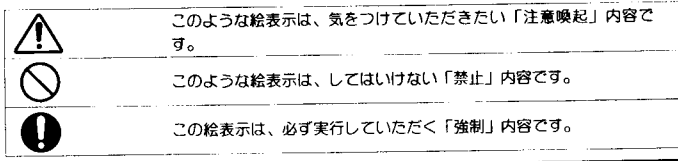 このような絵表示は、気をつけていただきたい「注意喚起」内容で
す。
このような絵表示は、してはいけない「禁止」内容です。
この絵表示は、必ず実行していただく「強制」内容です。